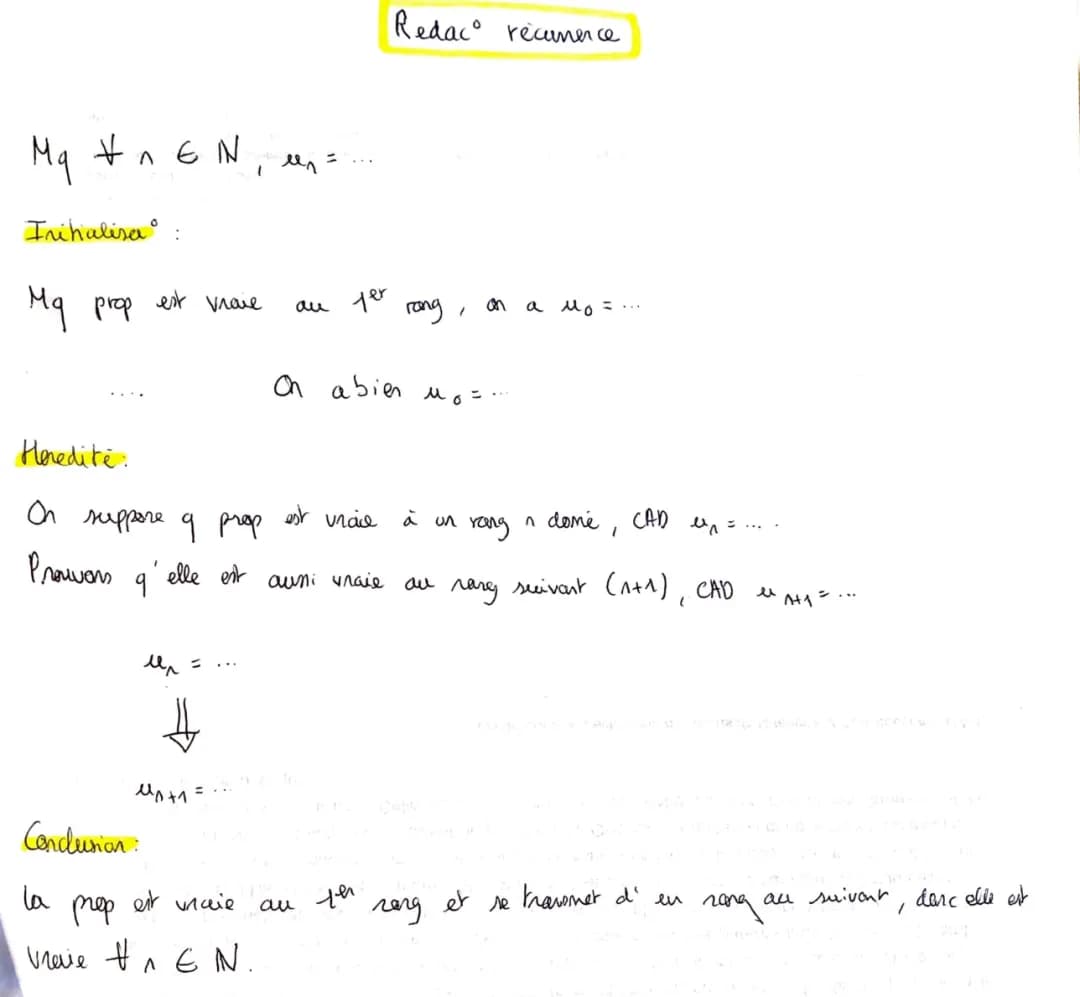 Redac° récurrence
Mq ∀ n ∈ ℕ, un = ...
Initialisa° :
Mq prop est vraie au 1er rang, on a u0 = ...
.... On a bien u0 = ...
Heredité :
On suppose q prop est vraie à un rang n donné, CAD un = ... .
Prouvons q'elle est aussi vraie au rang suivant (n+1), CAD un+1 = ...
un = ...
⇓
un+1 = ...
Conclusion :
La prop est vraie au 1er rang et se transmet d'un rang au suivant, donc elle est
vraie ∀ n ∈ ℕ.